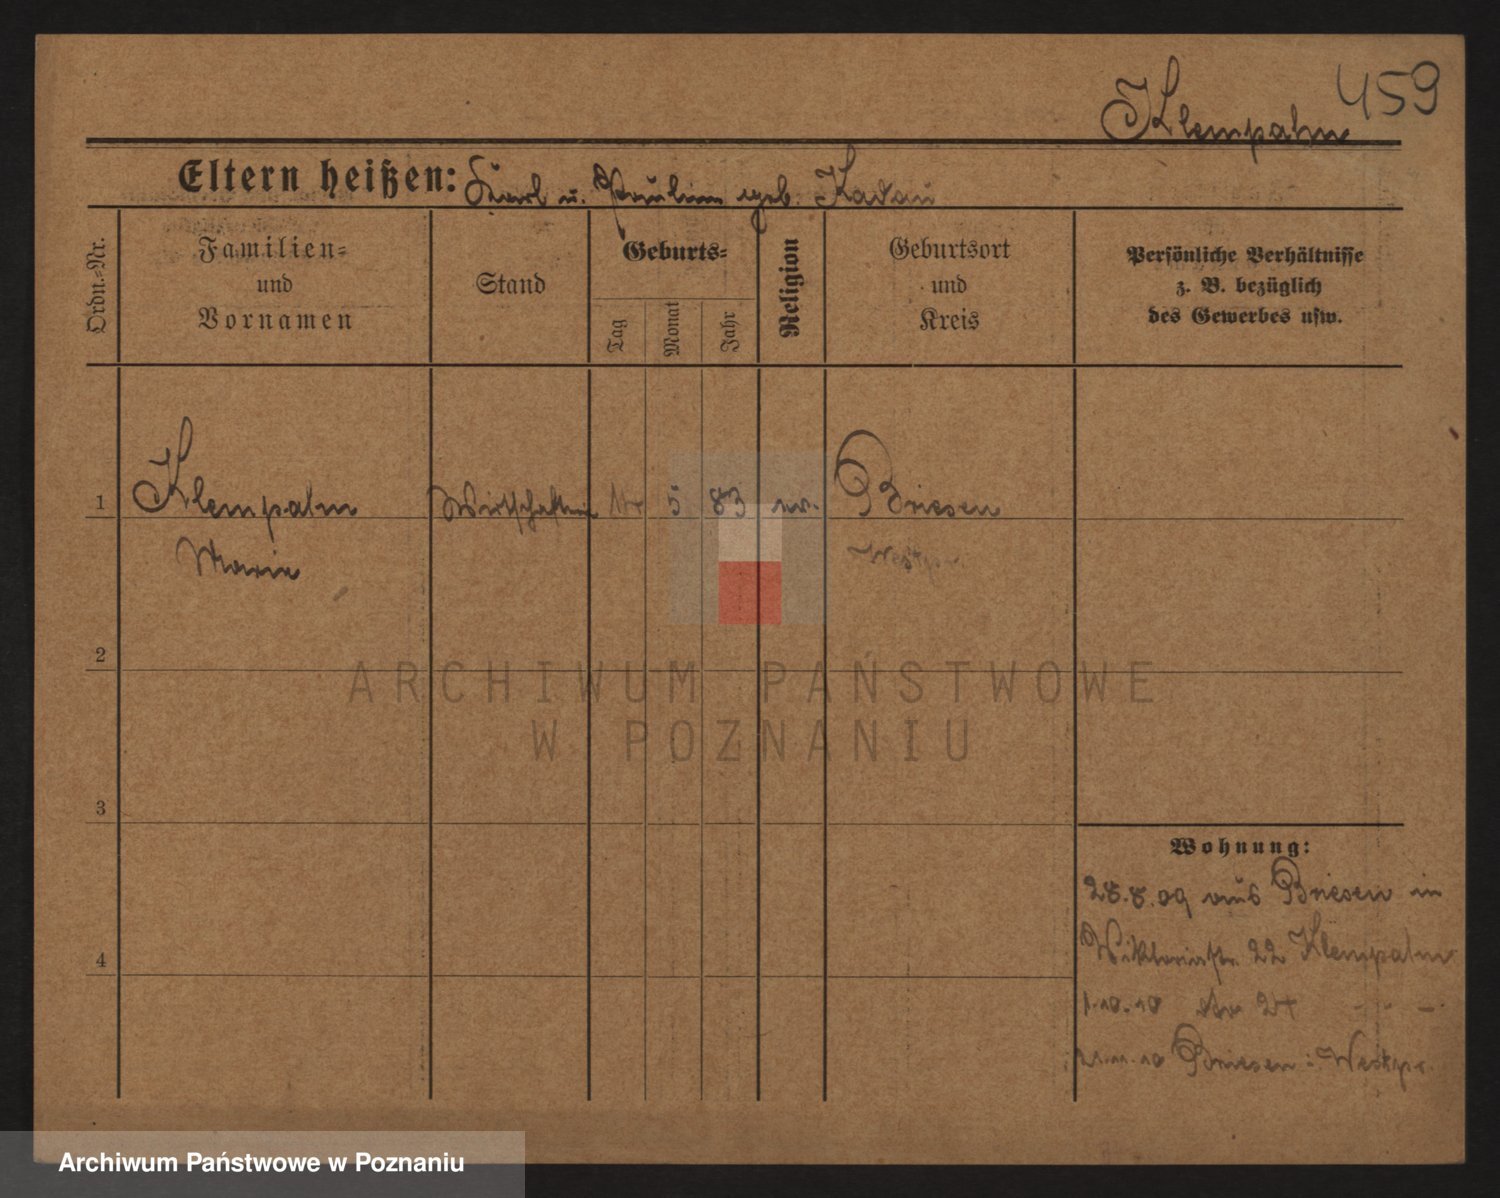 459
Klempahn
Eltern heißen: Karl u. Pauline geb. Kadau
Ordn.-Nr.
Familien-
und
Vornamen
Stand
Geburts-
Tag
Monat
Jahr
Religion
Geburtsort
und
Kreis
Persönliche Verhältnisse
z. B. bezüglich
des Gewerbes usw.
1 Klempahn Wirtschafterin 5 83 ev. Briesen
Marie Westpr.
2
3
4
Wohnung:
28.8.09 aus Briesen in
Viktoriastr. 22 Klempahn
1.10.10 24 - - -
21.11.10 Briesen i. Westpr.
ARCHIWUM PAŃSTWOWE
W POZNANIU
Archiwum Państwowe w Poznaniu